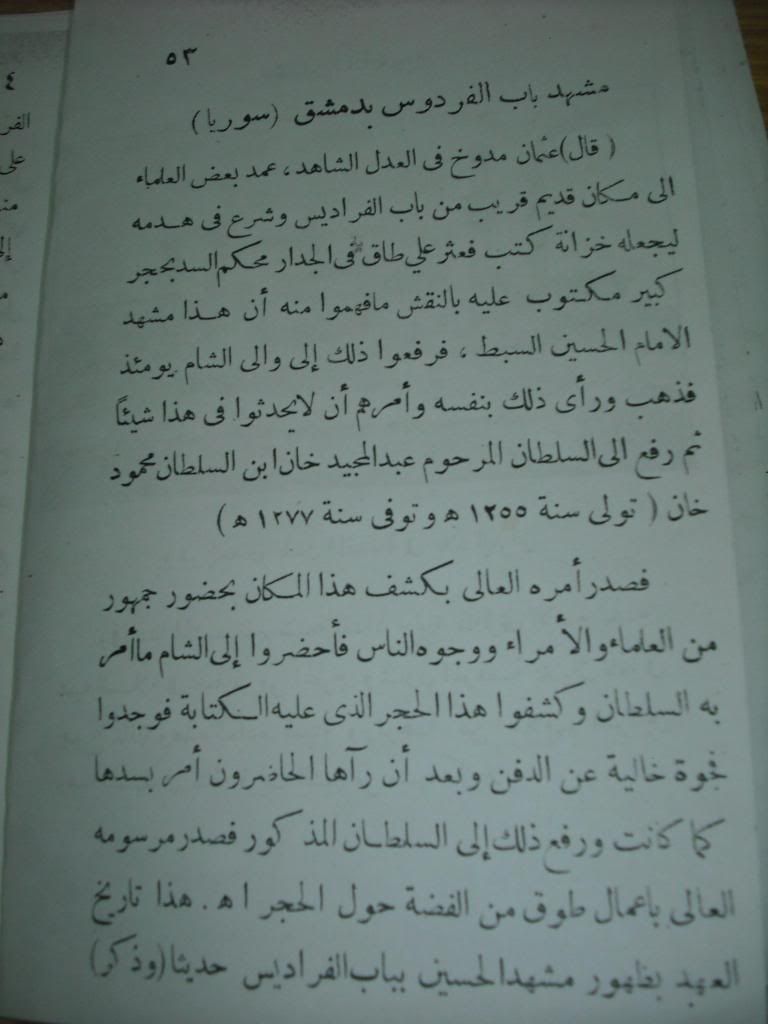 ٥٣
مشهد باب الفردوس بدمشق (سوريا)
(قال) عثمان مدوخ فى العدل الشاهد، عمد بعض العلماء
الى مكان قديم قريب من باب الفراديس وشرع فى هدمه
ليجعله خزانة كتب فعثر علي طاق فى الجدار محكم السد بحجر
كبير مكتوب عليه بالنقش مافهموا منه أن هذا مشهد
الامام الحسين السبط ، فرفعوا ذلك إلى والى الشام يومئذ
فذهب ورأى ذلك بنفسه وأمرهم أن لايحدثوا فى هذا شيئاً
ثم رفع الى السلطان المرحوم عبدالمجيد خان ابن السلطان محمود
خان ( تولى سنة ١٢٥٥ ه وتوفى سنة ١٢٧٧ ه )
فصدر أمره العالى بكشف هذا المكان بحضور جمهور
من العلماء والأمراء ووجوه الناس فأحضروا إلى الشام ماأمر
به السلطان وكشفوا هذا الحجر الذى عليه الكتابة فوجدوا
فجوة خالية عن الدفن وبعد أن رآها الحاضرون أمر بسدها
كما كانت ورفع ذلك إلى السلطان المذكور فصدر مرسومه
العالى باعمال طوق من الفضة حول الحجر اه . هذا تاريخ
العهد بظهور مشهد الحسين بباب الفراديس حديثا (وذكر)
٤
الفر
على
منه
إلى